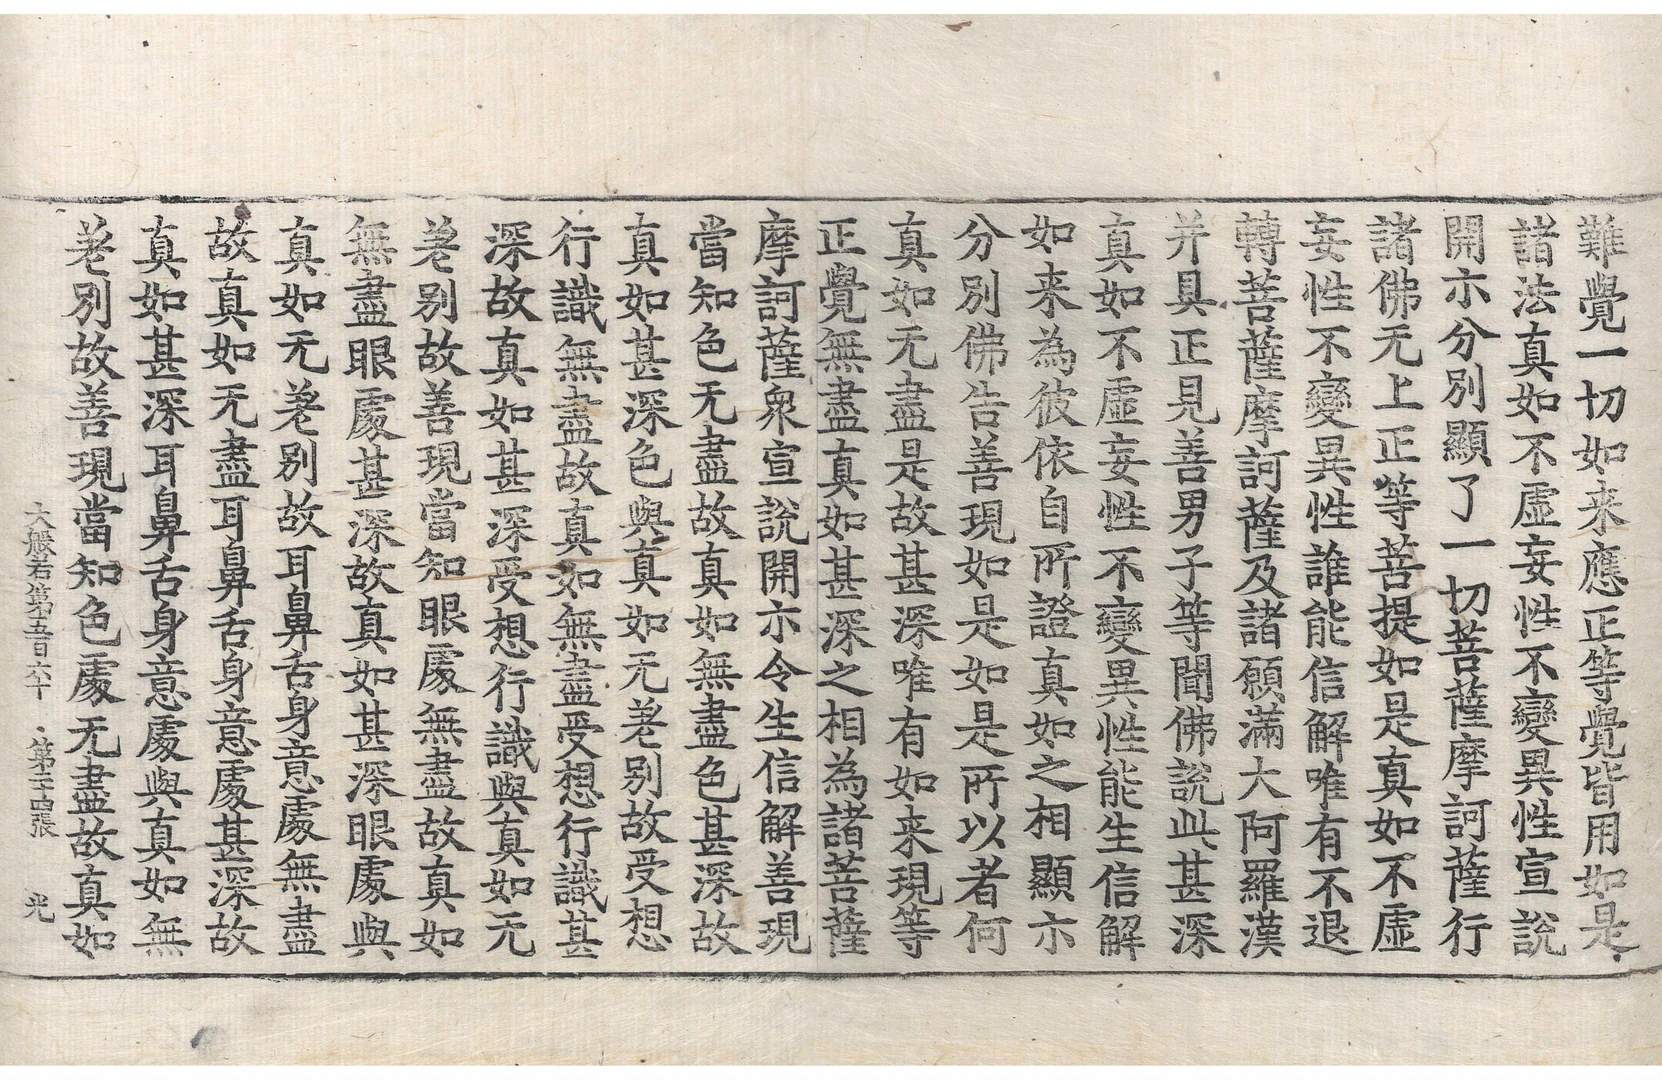 難覺一切如来應正等覺皆用如是
諸法真如不虛妄性不變異性宣說
開示分別顯了一切菩薩摩訶薩行
諸佛无上正等菩提如是真如不虛
妄性不變異性誰能信解唯有不退
轉菩薩摩訶薩及諸願滿大阿羅漢
并具正見善男子等聞佛說此甚深
真如不虛妄性不變異性能生信解
如来為彼依自所證真如之相顯示
分別佛告善現如是如是所以者何
真如无盡是故甚深唯有如来現等
正覺無盡真如甚深之相為諸菩薩
摩訶薩衆宣說開示令生信解善現
當知色无盡故真如無盡色甚深故
真如甚深色與真如无差別故受想
行識無盡故真如無盡受想行識甚
深故真如甚深受想行識與真如无
差別故善現當知眼處無盡故真如
無盡眼處甚深故真如甚深眼處與
真如无差別故耳鼻舌身意處無盡
故真如无盡耳鼻舌身意處甚深故
真如甚深耳鼻舌身意處與真如無
差別故善現當知色處无盡故真如
大般若第五百六十 第二十四張 光